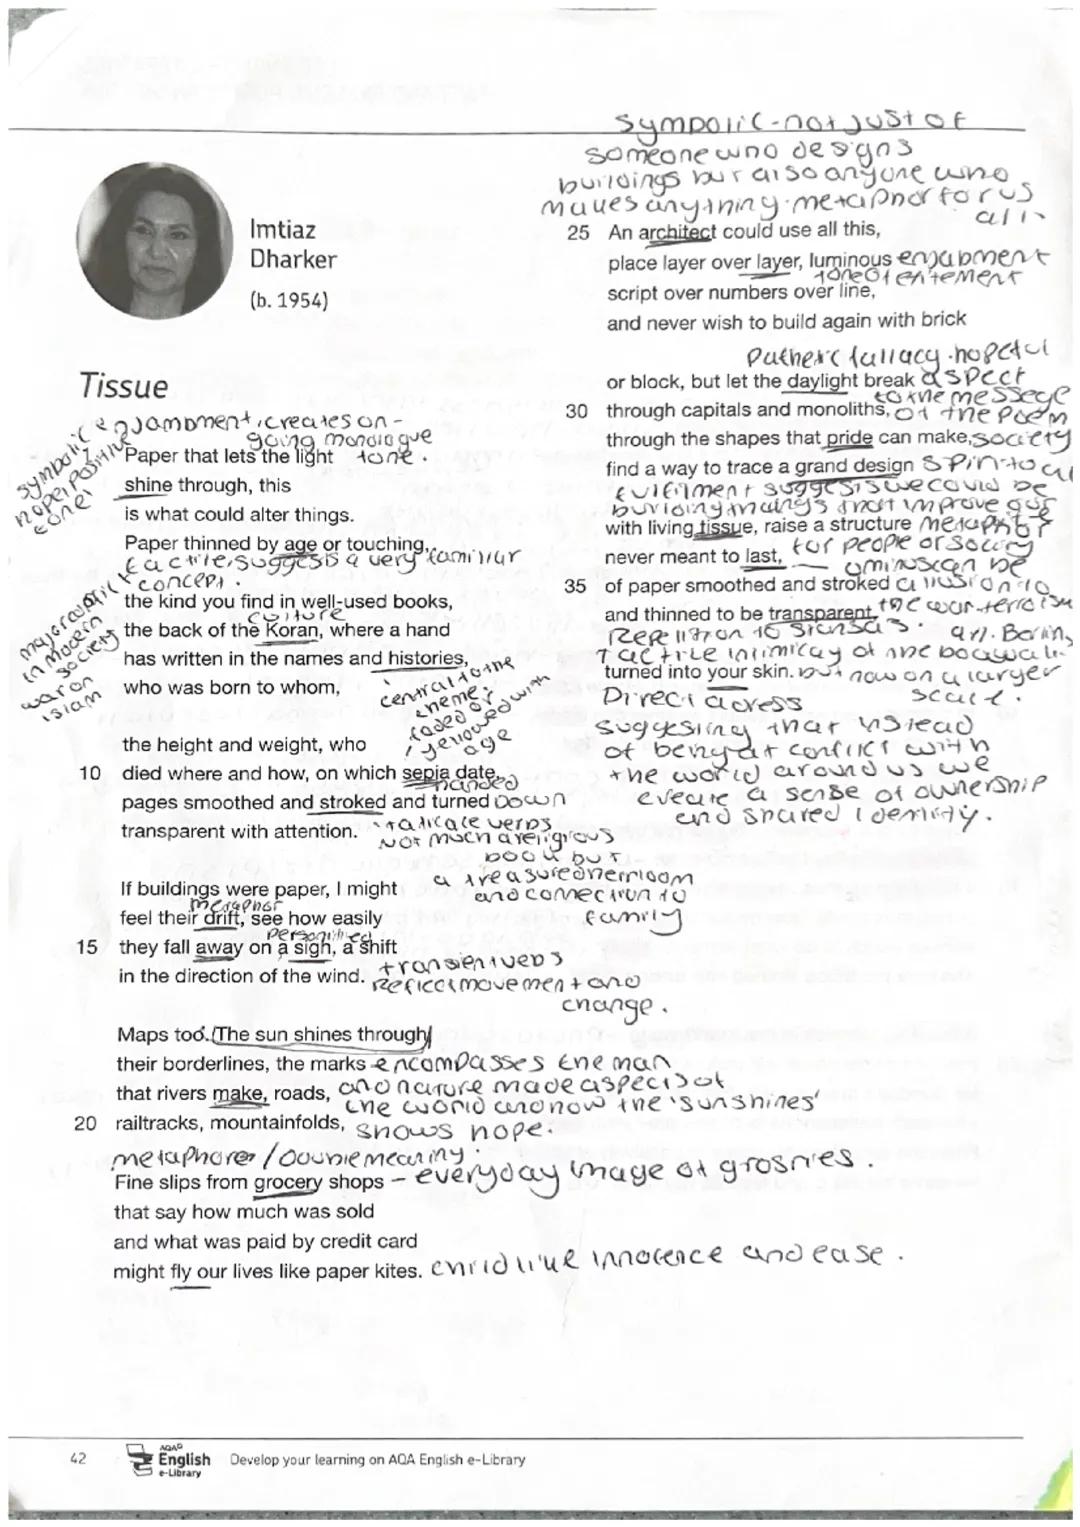 Imtiaz
Dharker
(b. 1954)
Tissue
enjambment, creates on-
going monologue
tone.
symbolic
hope, positive
tone
Paper that lets the light
shine through, this
is what could alter things.
Paper thinned by age or touching,
tactile, suggests a very familiar
concept.
the kind you find in well-used books,
culture
the back of the Koran, where a hand
has written in the names and histories,
who was born to whom,
major religion
in modern
society
war on
islam
central to the
theme.
faded or
yellowed with
age
the height and weight, who
10 died where and how, on which sepia date,
pages smoothed and stroked and turned
handed
down
transparent with attention.
verbs
Not much a religious
book but
a treasured heirloom
and connection to
family
If buildings were paper, I might
metaphor
feel their drift, see how easily
personified
15 they fall away on a sigh, a shift
in the direction of the wind.
transient verbs
Reflect movement and
change.
Maps too. (The sun shines through)
their borderlines, the marks
that rivers make, roads,
20 railtracks, mountainfolds,
encompasses the man
and nature made aspects of
the world and now the 'sunshines'
shows hope.
metaphor / double meaning.
Fine slips from grocery shops - everyday image of
that say how much was sold
and what was paid by credit card
might fly our lives like paper kites. child like innocence and ease.
symbolic - not just of
someone who designs
buildings but also anyone who
makes anything. metaphor for us
all.
25 An architect could use all this,
place layer over layer, luminous enjabment
tone of
script over numbers over line,
and never wish to build again with brick
Pathetic fallacy. hopeful
or block, but let the daylight break aspect
to the messege
30 through capitals and monoliths, of the poem
through the shapes that pride can make, society
find a way to trace a grand design
fulfilment suggests we could be
buriding things that improve our
with living tissue, raise a structure metaphor
for people or society
never meant to last, ominus can be
35 of paper smoothed and stroked allusion to
and thinned to be transparent, the war-terroism
Repetition
Tactile intimicay of the
turned into your skin. but now on a larger
scale.
Direct adress
suggesting that instead
of being at conflict with
the world around us we
create a sense of ownership
and shared identity.
42
AQA
English
e-Library
Develop your learning on AQA English e-Library